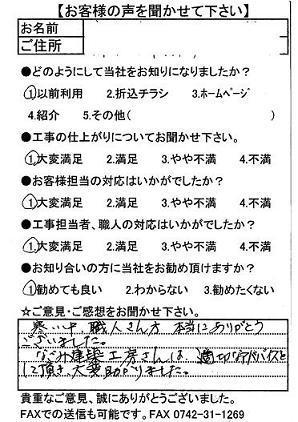 【お客様の声を聞かせて下さい】
お名前
ご住所
●どのようにして当社をお知りになりましたか？
①以前利用 2.折込チラシ 3.ホームページ
4.紹介 5.その他( )
●工事の仕上がりについてお聞かせ下さい。
①大変満足 2.満足 3.やや不満 4.不満
●お客様担当の対応はいかがでしたか？
①大変満足 2.満足 3.やや不満 4.不満
●工事担当者、職人の対応はいかがでしたか？
①大変満足 2.満足 3.やや不満 4.不満
●お知り合いの方に当社をお勧め頂けますか？
①勧めても良い 2.わからない 3.勧めたくない
☆ご意見・ご感想をお聞かせ下さい。
寒い中、職人さん方 本当にありがとう
ございました。
建築工房さんは、適切なアドバイスを
して頂き、大変助かりました。
貴重なご意見、誠にありがとうございました。
FAXでの送信も可能です。FAX 0742-31-1269